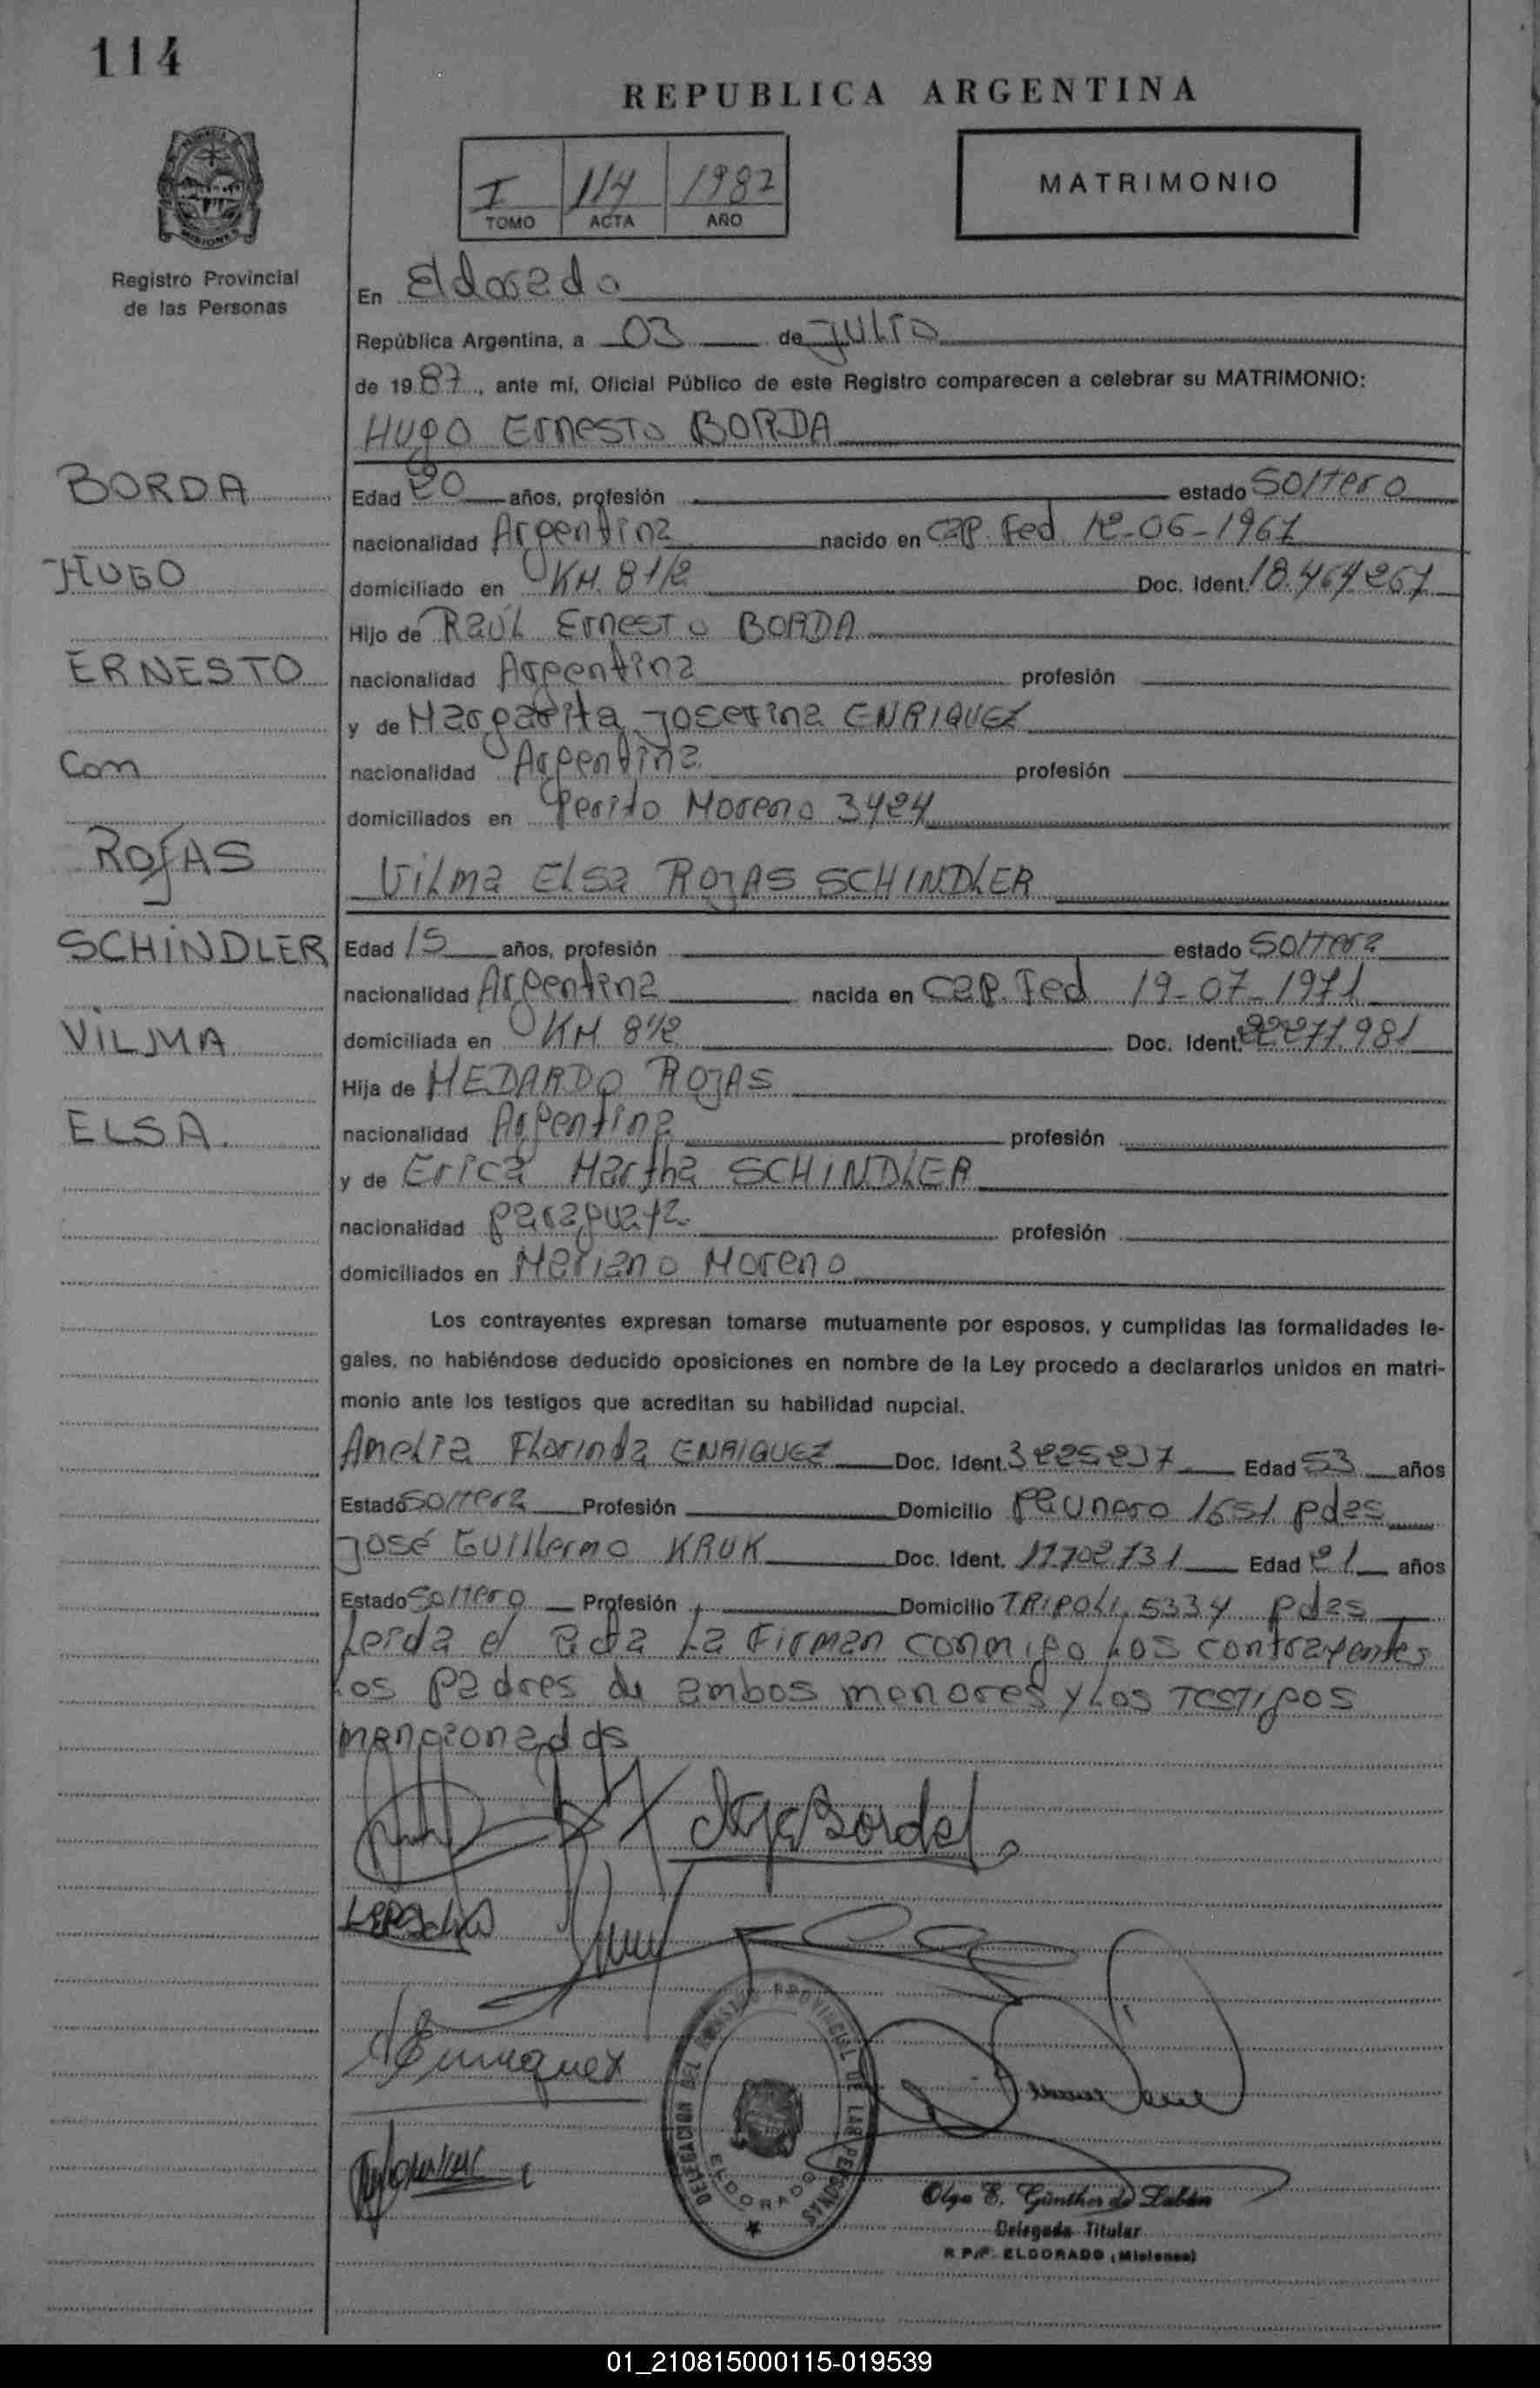 114
REPUBLICA ARGENTINA
I 114 1987
TOMO ACTA AÑO
MATRIMONIO
Registro Provincial
de las Personas
En Eldorado
República Argentina, a 03 de Julio
de 1987, ante mí, Oficial Público de este Registro comparecen a celebrar su MATRIMONIO:
Hugo Ernesto BORDA
BORDA
Edad 20 años, profesión estado Soltero
nacionalidad Argentina nacido en Cap. Fed. 12-06-1967
HUGO
domiciliado en KM. 8 1/2 Doc. Ident. 18.464.267
Hijo de Raúl Ernesto BORDA
ERNESTO
nacionalidad Argentina profesión
y de Margarita Josefina ENRIQUEZ
Con
nacionalidad Argentina profesión
domiciliados en Perito Moreno 3424
ROJAS
Vilma Elsa ROJAS SCHINDLER
SCHINDLER
Edad 15 años, profesión estado Soltera
nacionalidad Argentina nacida en Cap. Fed 19-07-1971
VILMA
domiciliada en KM 8 1/2 Doc. Ident. 22271.981
Hija de MEDARDO ROJAS
ELSA.
nacionalidad Argentina profesión
y de Erica Martha SCHINDLER
nacionalidad paraguaya. profesión
domiciliados en Mariano Moreno
Los contrayentes expresan tomarse mutuamente por esposos, y cumplidas las formalidades le-
gales, no habiéndose deducido oposiciones en nombre de la Ley procedo a declararlos unidos en matri-
monio ante los testigos que acreditan su habilidad nupcial.
Amelia Florinda ENRIQUEZ Doc. Ident. 3225237 Edad 53 años
Estado Soltera Profesión Domicilio Paunero 1651 pdas
José Guillermo KRUK Doc. Ident. 17702731 Edad 21 años
Estado Soltero Profesión Domicilio TRIPOLI, 5334 pdas
Leida el acta La Firman conmigo Los contrayentes
Los padres de ambos menores y Los Testigos
mencionados
Enriquez
DELEGACION DEL REGISTRO PROVINCIAL DE LAS PERSONAS
ELDORADO
Olga E. Günther de Labán
Delegada Titular
R.P.P. ELDORADO (Misiones)
01_210815000115-019539